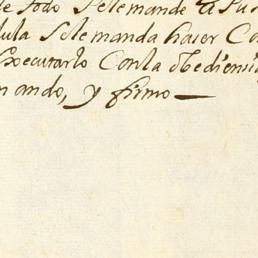 de todo Selemande el Su
dula Selemanda haser Co
Executarlo Conla obediensi
mando, y firmo